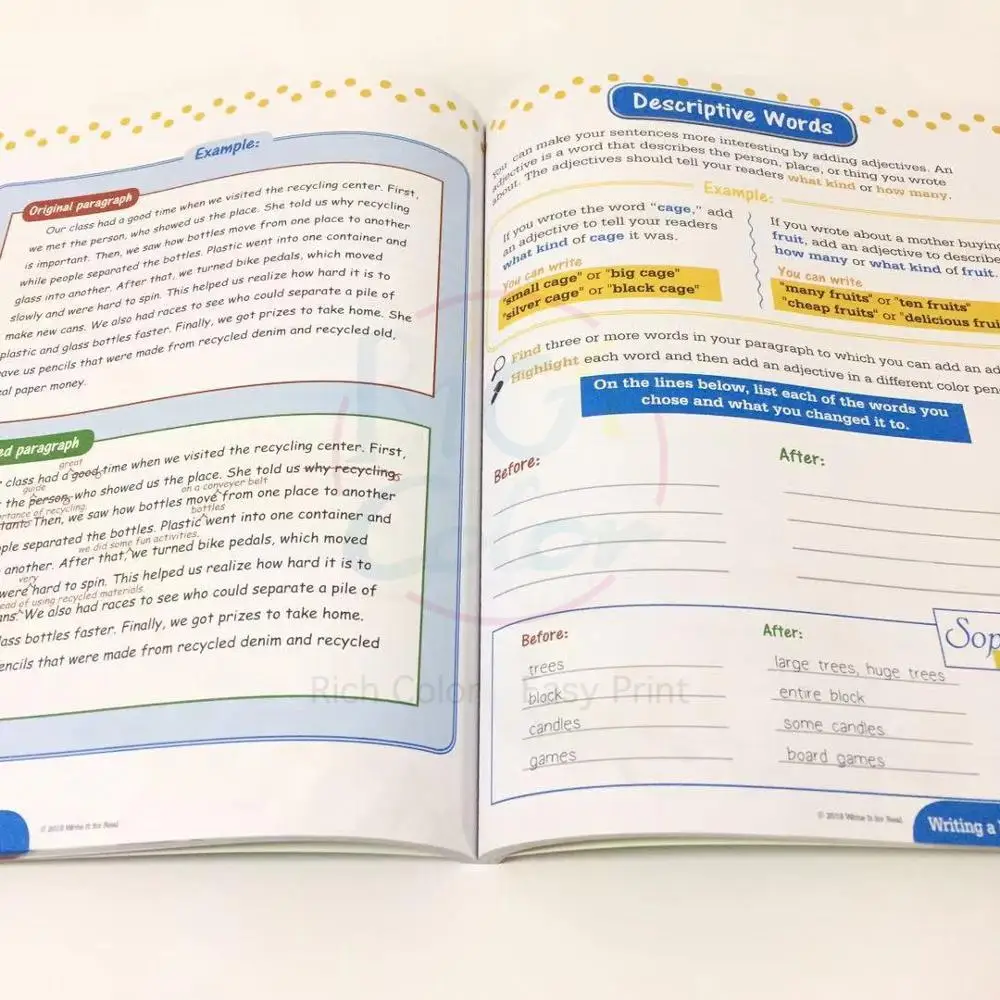 Example:
Original paragraph
Our class had a good time when we visited the recycling center. First,
we met the person, who showed us the place. She told us why recycling
is important. Then, we saw how bottles move from one place to another
while people separated the bottles. Plastic went into one container and
glass into another. After that, we turned bike pedals, which moved
slowly and were hard to spin. This helped us realize how hard it is to
make new cans. We also had races to see who could separate a pile of
plastic and glass bottles faster. Finally, we got prizes to take home. She
ave us pencils that were made from recycled denim and recycled old,
eal paper money.
ed paragraph
great
class had a good time when we visited the recycling center. First,
guide
the person, who showed us the place. She told us why recycling
ortance of recycling. on a conveyer belt
tant. Then, we saw how bottles move from one place to another
bottles
ple separated the bottles. Plastic went into one container and
we did some fun activities.
another. After that, we turned bike pedals, which moved
very
were hard to spin. This helped us realize how hard it is to
ead of using recycled materials.
ans. We also had races to see who could separate a pile of
lass bottles faster. Finally, we got prizes to take home.
encils that were made from recycled denim and recycled
© 2018 Write It for Real
Descriptive Words
You can make your sentences more interesting by adding adjectives. An
adjective is a word that describes the person, place, or thing you wrote
about. The adjectives should tell your readers what kind or how many.
Example:
If you wrote the word "cage," add
an adjective to tell your readers
what kind of cage it was.
You can write
"small cage" or "big cage"
"silver cage" or "black cage"
If you wrote about a mother buying
fruit, add an adjective to describe
how many or what kind of fruit.
You can write
"many fruits" or "ten fruits"
"cheap fruits" or "delicious frui
Find three or more words in your paragraph to which you can add an ad
Highlight each word and then add an adjective in a different color pen
On the lines below, list each of the words you
chose and what you changed it to.
Before: After:
Sop
Before: After:
trees large trees, huge trees
block entire block
candles some candles
games board games
© 2018 Write It for Real
Writing a
Rich Color Easy Print